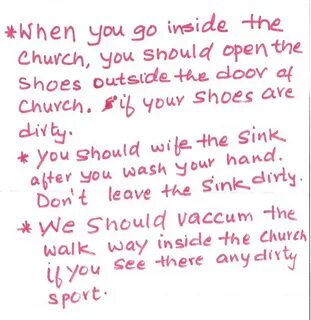 *When you go inside the
Church, you should open the
Shoes outside the door of
Church. if your shoes are
dirty.
* You should wife the sink
after you wash your hand.
Don't leave the sink dirty.
* We should vaccum the
walk way inside the church
if you see there any dirty
sport.